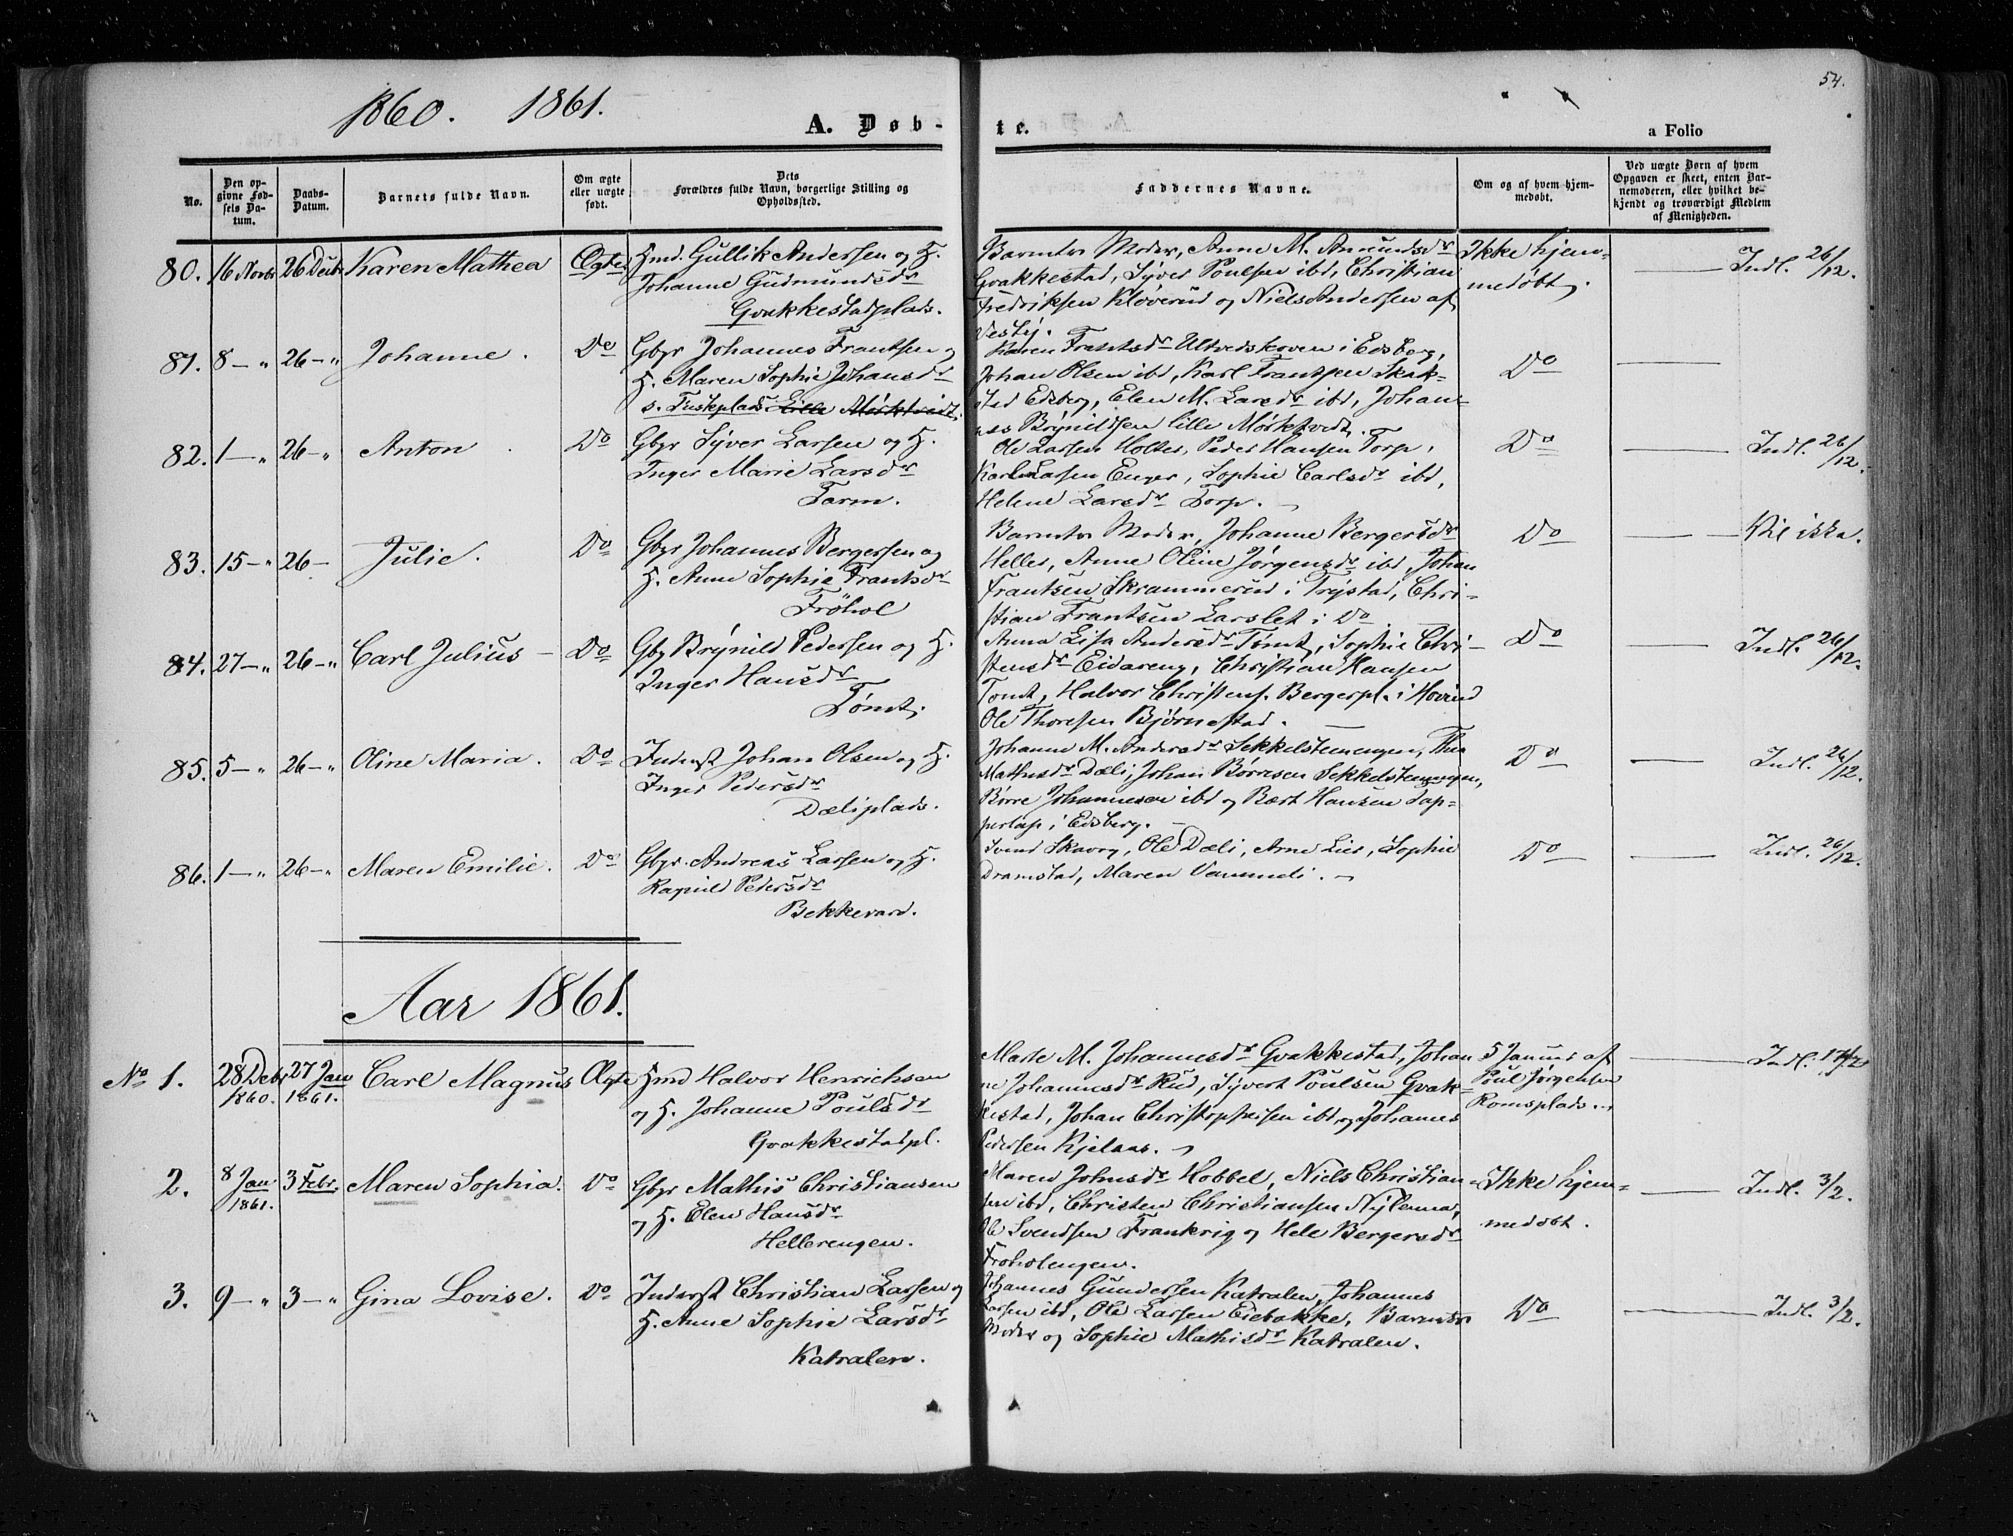 54.
1860. 1861.
A. Døb-
te.
a Folio
No.
Den op-
givne Fød-
sels Da-
tum.
Daabs-
Datum.
Barnets fulde Navn.
Om ægte
eller uægte
født.
Dets
Forældres fulde Navn, borgerlige Stilling og
Opholdssted.
Faddernes Navne.
Om og af hvem hjem-
medøbt.
Ved uægte Børn af hvem
Opgaven er skeet, enten Bar-
nemoderen, eller hvilket be-
kjendt og troværdigt Medlem
af Menigheden.
80. 16 Novbr 26 Decbr Karen Mathea Ægte
Hmd. Gullik Andersen og H.
Johanne Gudmundsdr
Gvakkestadplads.
Barnets Moder, Anne M. Amundsdr
Gvakkestad, Syver Poulsen ibd, Christian
Fredriksen Kløverud og Niels Andersen af
Vestby.
Ikke hjem-
medøbt.
Indl. 26/12.
81. 8 — " 26 — " Johanne. Do
Gbgr Johannes Frantsen og
H. Maren Sophie Johansdr
s. Tuskplads Lille Mørktvedt.
Karen Frantsdr Ultvedtskoven i Edsberg,
Johan Olsen ibd, Karl Frantsen Skak-
stad Edsberg, Elen M. Larsdr ibd, Johan-
nes Brynildsen lille Mørktvedt.
Do
82. 1 — " 26 — " Anton. Do
Gbgr Syver Larsen og H.
Inger Marie Larsdr
Farm.
Ole Larsen Holter, Peder Hansen Torp,
Karl Larsen Enger, Sophie Carlsdr ibd,
Helene Larsdr Torp.
Do
Indl. 26/12.
83. 15 — " 26 — Julie. Do
Gbgr Johannes Bergersen og
H. Anne Sophie Frantsdr
Frøhol
Barnets Moder, Johanne Bergersdr
Heller, Anne Oline Jørgensdr ibd, Johan
Frantsen Skrammerud i Trystad, Chri-
stian Frantsen Larslet i Do
Do
Vil ikke.
84. 27 — " 26 — " Carl Julius — Do
Gbgr Brynild Pedersen og H.
Inger Hansdr
Tømt.
Anna Lisa Andersdr Tømt, Sophie Chri-
stensdr Eidareng, Christian Hansen
Tomt, Halvor Christens. Bergerpl. i Hovind
Ole Thoresen Bjørnestad.
Do
Indl. 26/12.
85. 5 — " 26 — " Oline Maria. Do
Inderst Johan Olsen og H.
Inger Pedersdr
Dæliplads.
Johanne M. Andersdr Sekkelstenengen, Thea
Mathisdr Dæli, Johan Børresen Sekkelstenengen,
Børre Johannesen ibd og Bært Hansen Lap-
perlap i Edsberg.
Do
Indl. 26/12.
86. 1 — " 26 — " Maren Emilie. Do
Gbgr. Andreas Larsen og H.
Ragnild Pedersdr
Bekkevard.
Svend Skavog, Ole Dæli, Arne Lier, Sophie
Dramstad, Maren Vammeli.
Do
Indl. 26/12.
Aar 1861.
No 1. 28 Debr 1860. 27 Jan 1861. Carl Magnus Ægte
Hmd Halvor Henrichsen
og H. Johanne Poulsdr
Gvakkestadpl.
Marte M. Johannesdr Gvakkestad, Johan
ne Johannesdr Rud, Syvert Poulsen Gvak-
kestad, Johan Christophersen ibd, og Johannes
Pedersen Kjelaas.
5 Januar af
Poul Jørgensen
Romsplads.
Indl. 17/2
2. 8 Jan 1861. 3 Febr. Maren Sophia. Do
Gbgr Mathis Christiansen
og H. Elen Hansdr
Hellerengen.
Maren Johnsdr Hobbel, Niels Christian-
sen ibd, Christen Christiansen Nylenna,
Ole Svendsen Frankrig og Hele Bergersdr
Froholengen.
Ikke hjem-
medøbt.
Indl. 3/2.
3. 9 — " 3 — " Gina Lovise. Do
Inderst Christian Larsen og
H. Anne Sophie Larsdr
Katralen.
Johannes Gundersen Katralen, Johannes
Larsen ibd, Ole Larsen Eiebakke, Barnets
Moder og Sophie Mathisdr Katralen.
Do
Indl. 3/2.